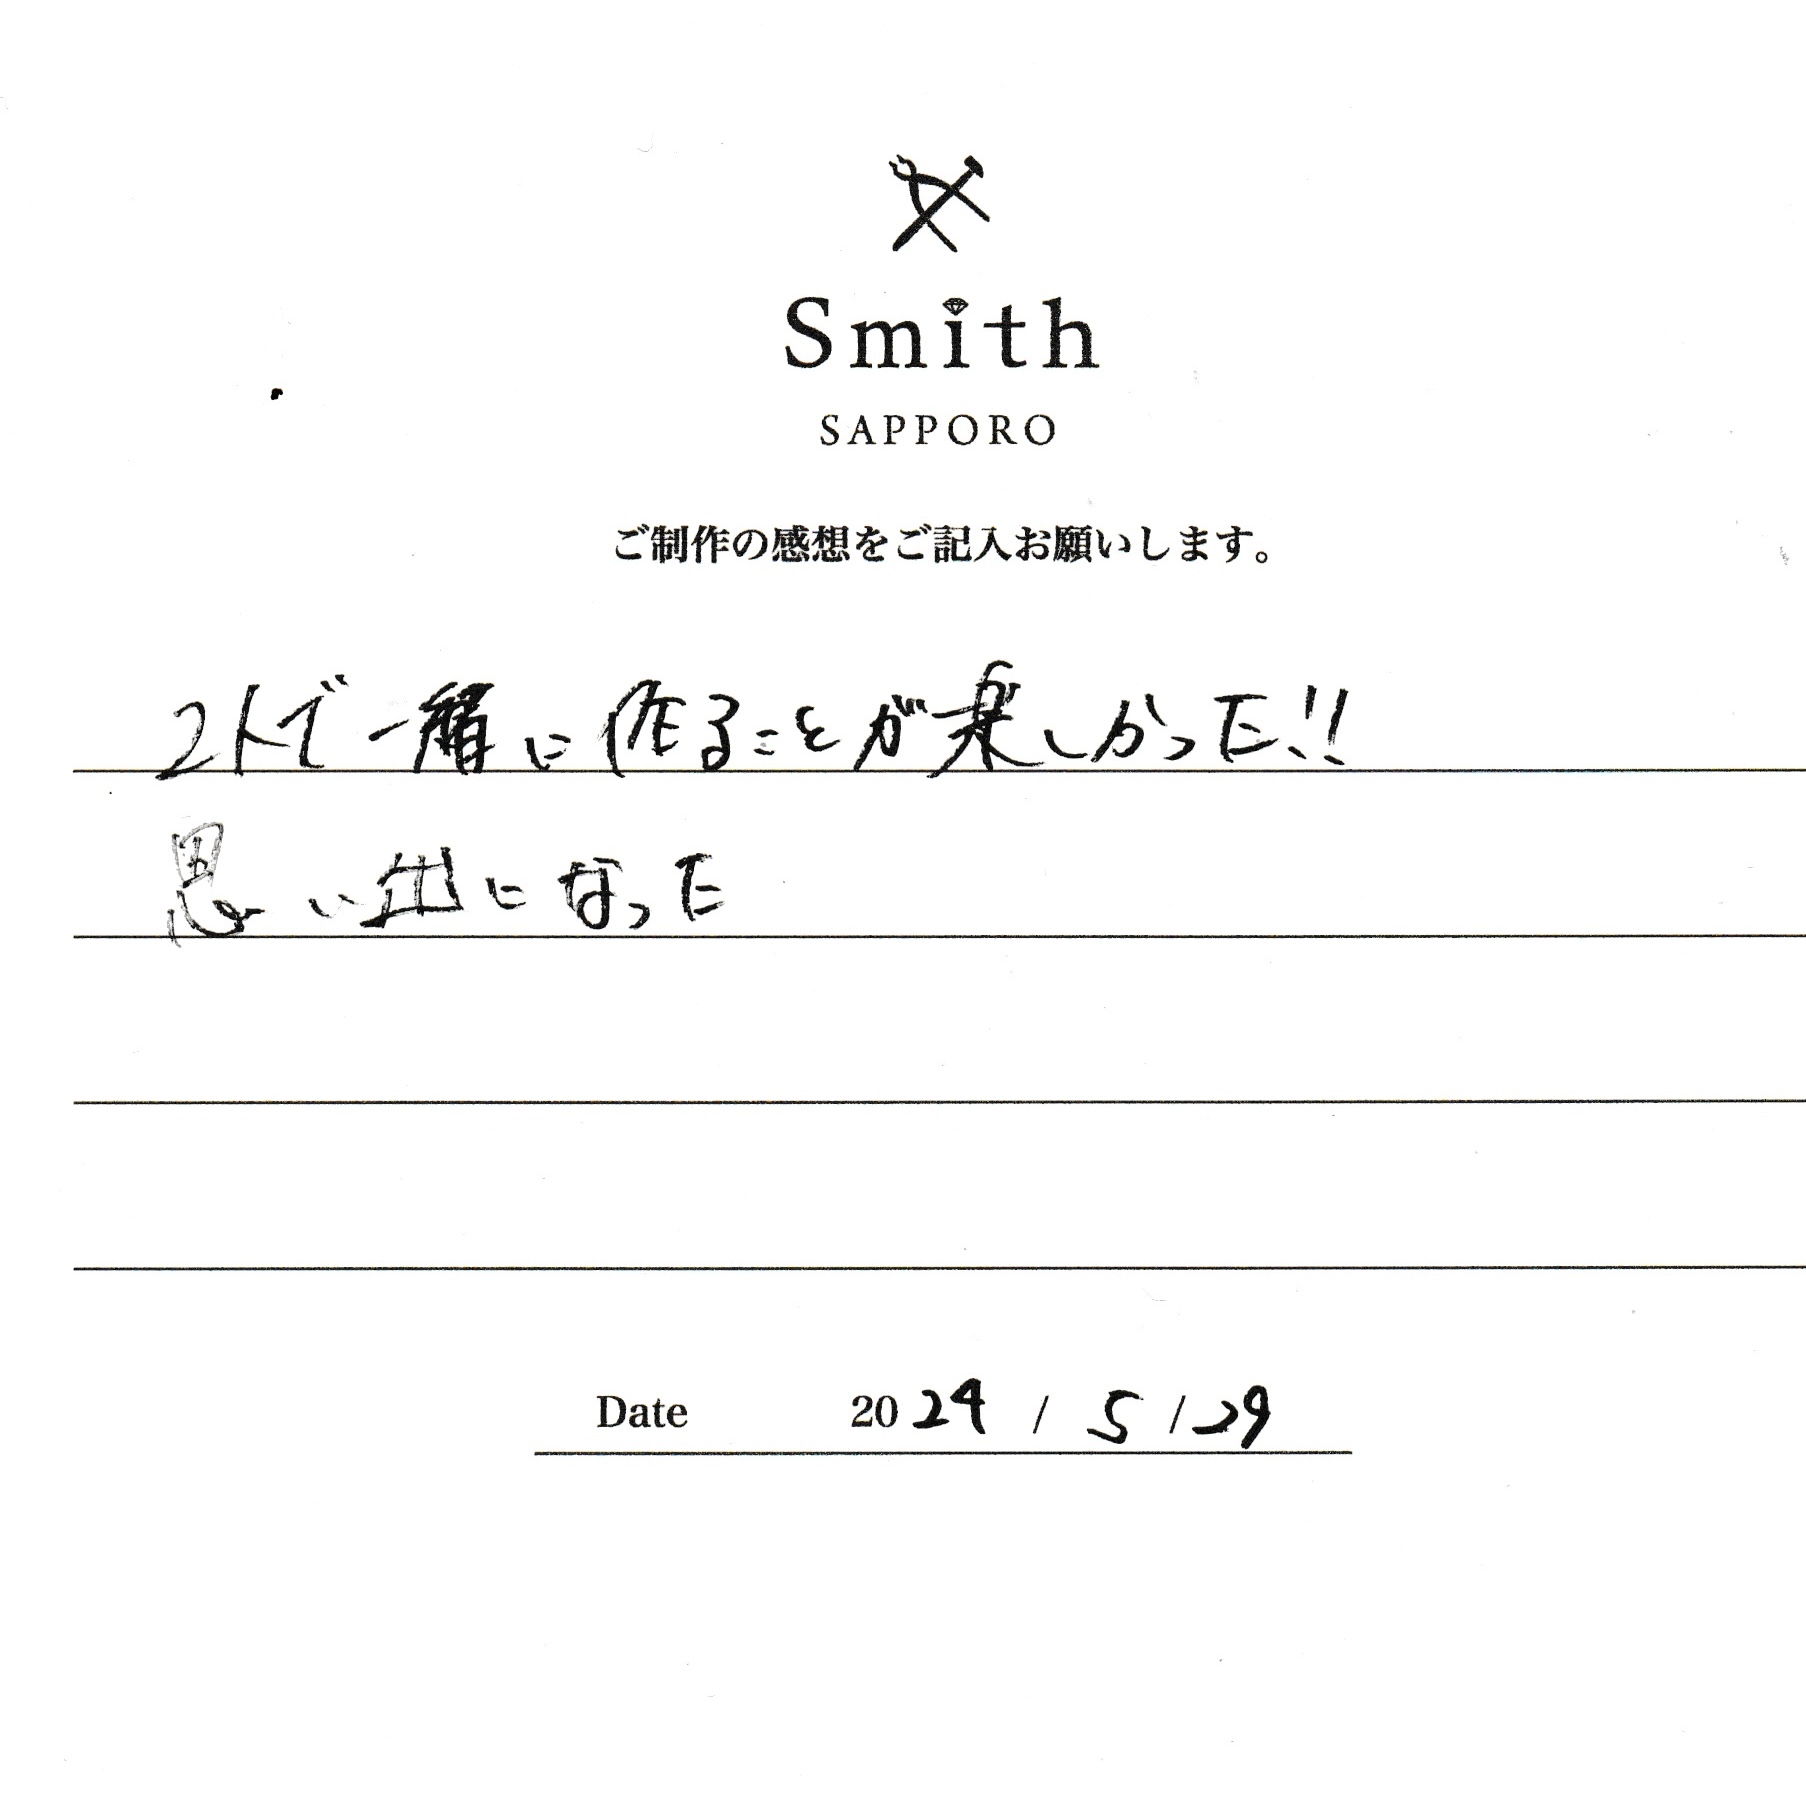 Smith
SAPPORO
ご制作の感想をご記入お願いします。
2人で一緒に作ることが楽しかった!!
思い出になった
Date 2024 / 5 / 29